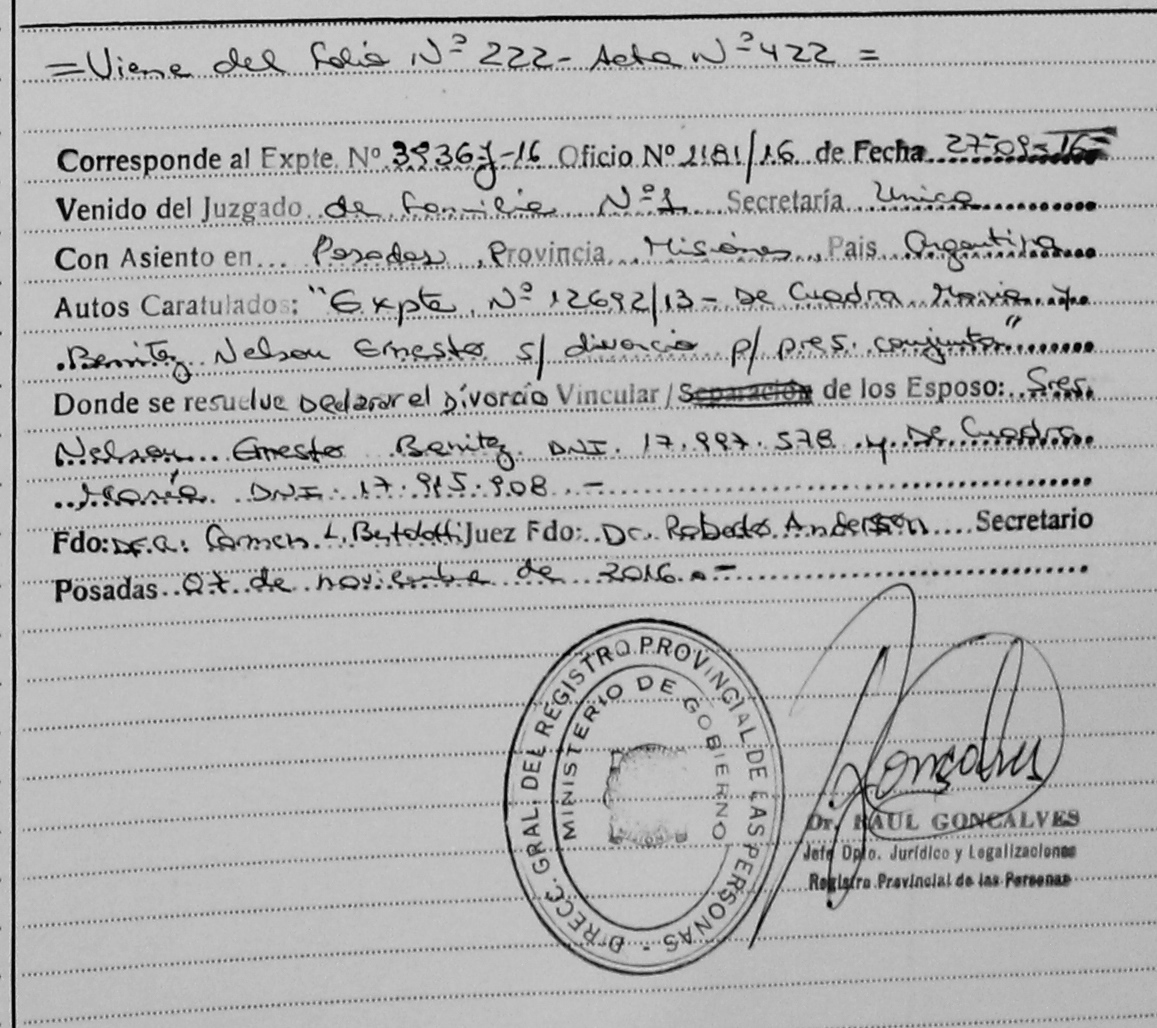 = Viene del folio Nº 222 - Acta Nº 422 =
Corresponde al Expte. Nº 3936-J-16 Oficio Nº 1181/16 de Fecha 27-09-16
Venido del Juzgado de Familia Nº 1 Secretaría Unica
Con Asiento en Posadas, Provincia Misiones, Pais Argentina
Autos Caratulados: "Expte. Nº 12692/13 - De Cuadra Maria y
Benitez Nelson Ernesto s/ divorcio p/ pres. conjunta"
Donde se resuelve Declarar el Divorcio Vincular / Separación de los Esposo: Sres.
Nelson Ernesto Benitez DNI. 17.997.578 y De Cuadra
María DNI. 17.915.908.-
Fdo: Dr.a: Carmen L. Bertolotti Juez Fdo: Dr. Roberto Andersen Secretario
Posadas 07 de noviembre de 2016.-
DIRECC. GRAL. DEL REGISTRO PROVINCIAL DE LAS PERSONAS -
MINISTERIO DE GOBIERNO
Dr. RAUL GONCALVES
Jefe Dpto. Jurídico y Legalizaciones
Registro Provincial de las Personas